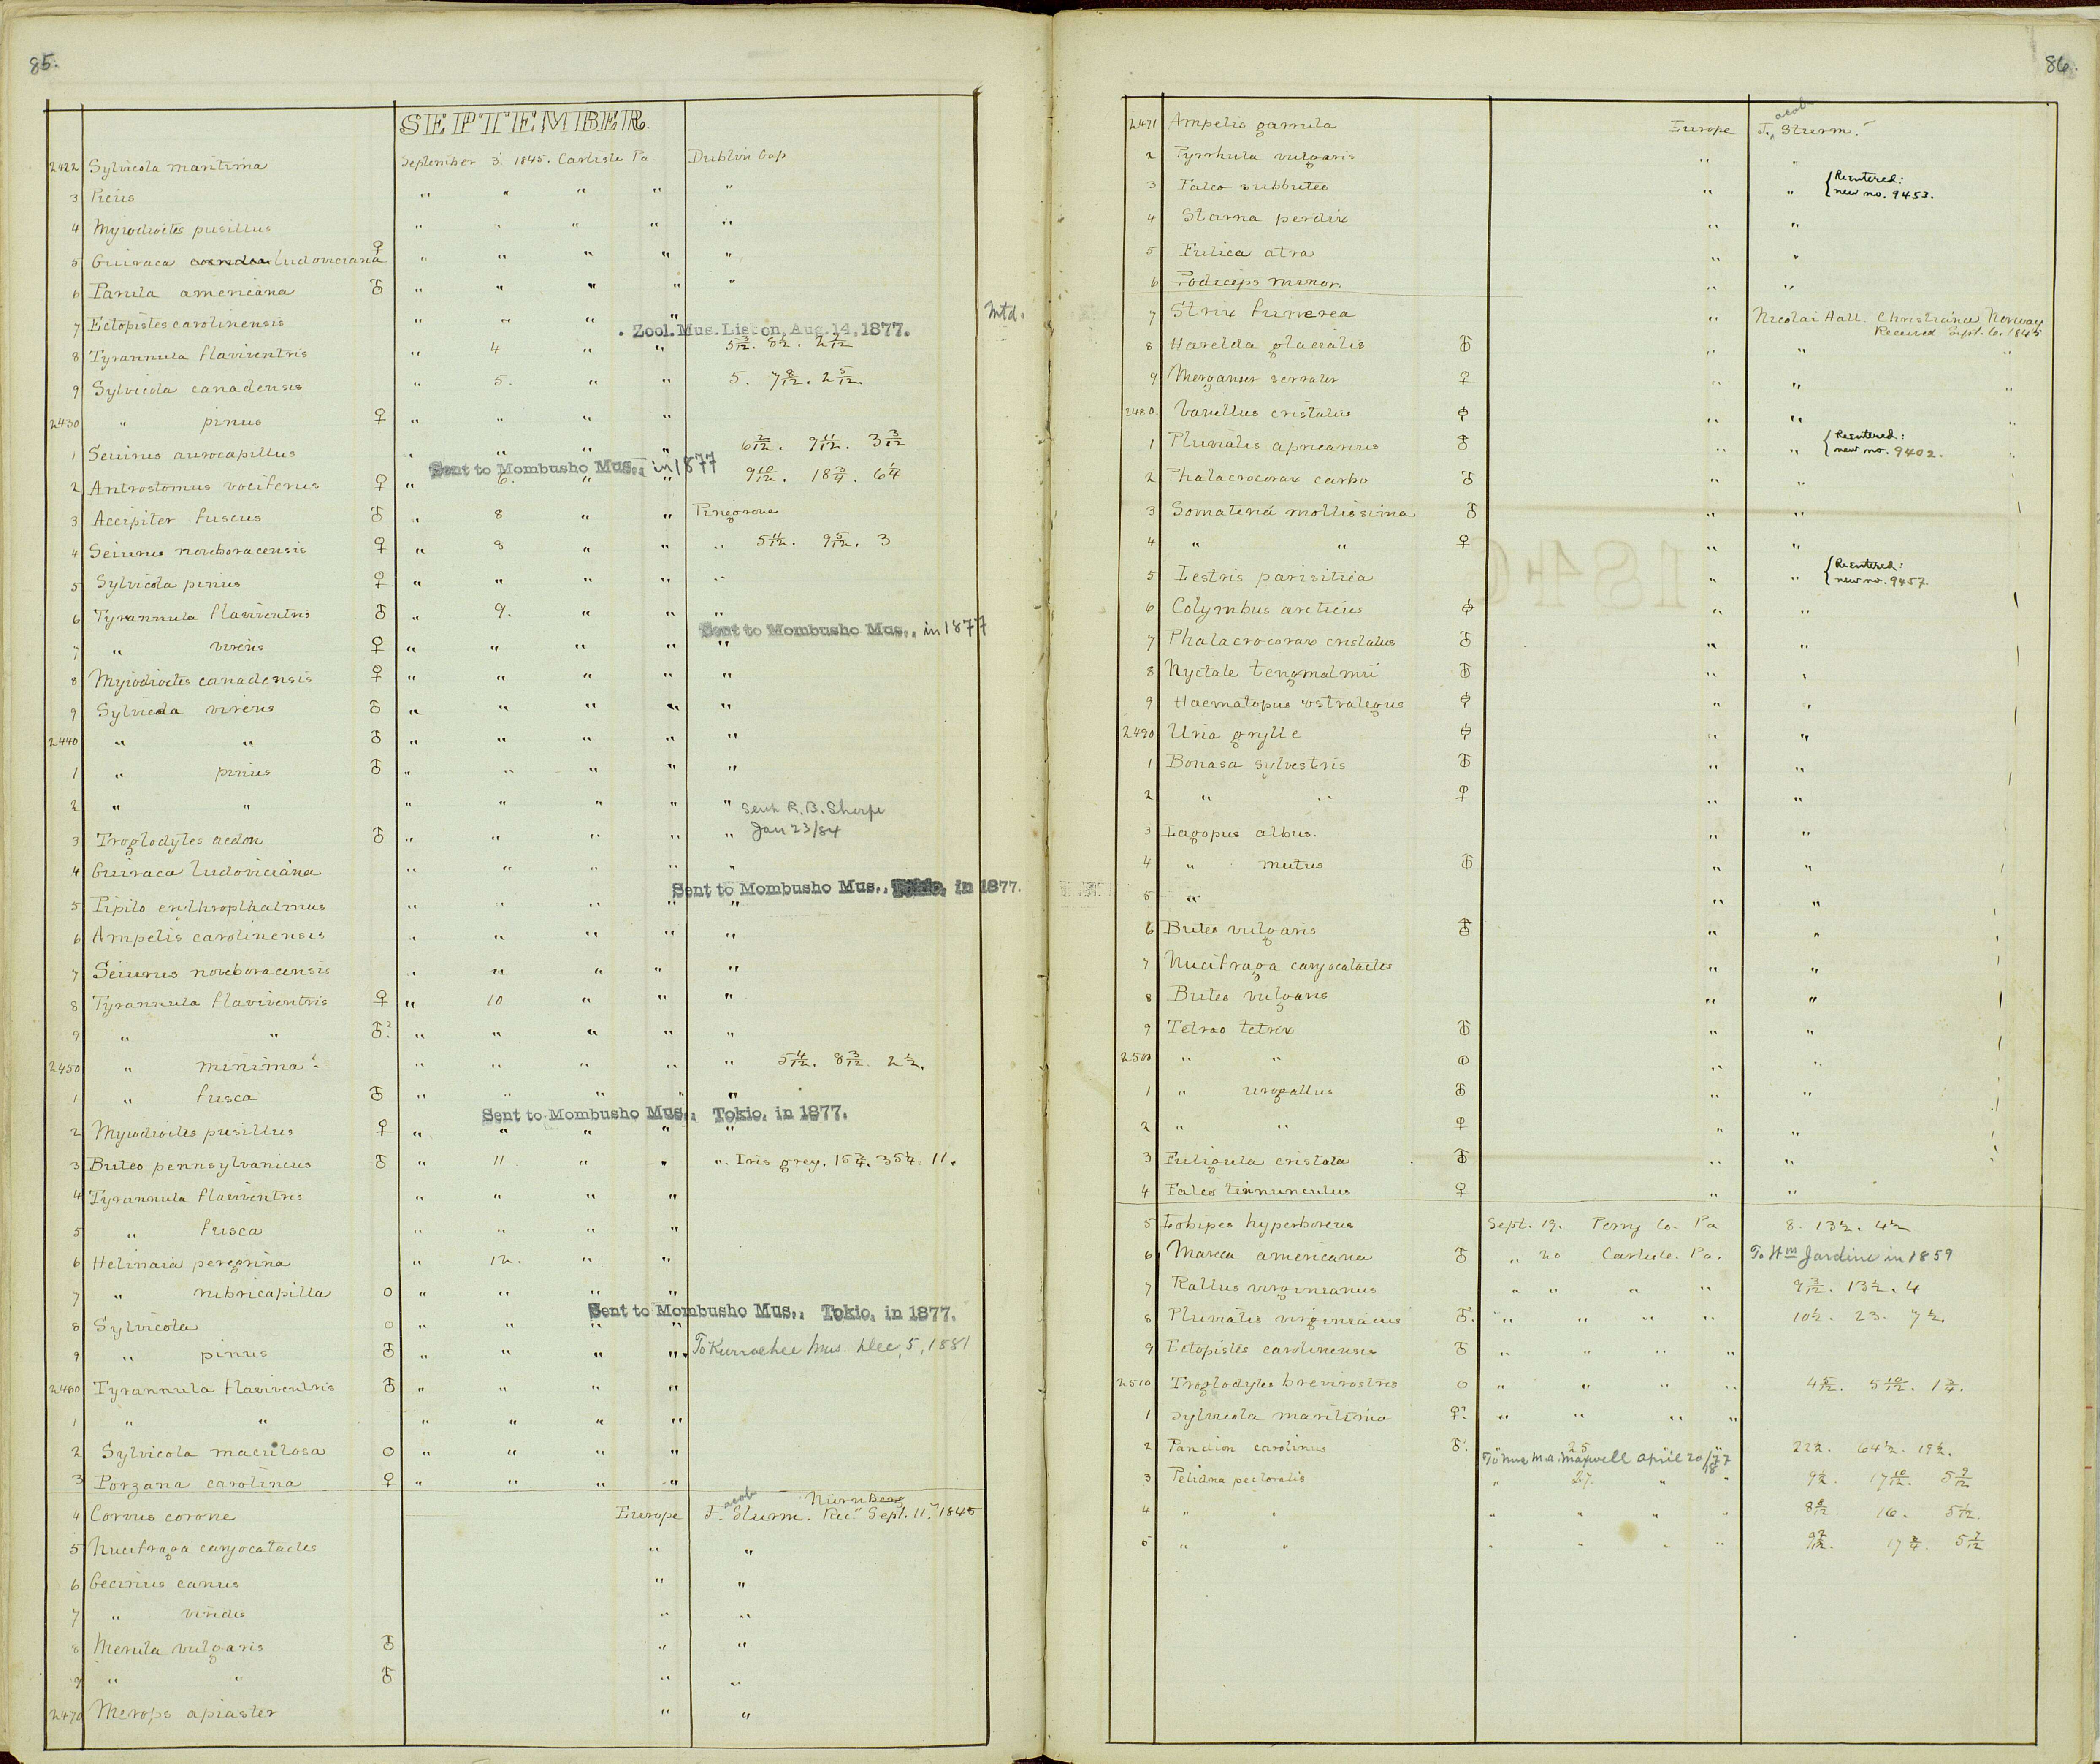 85.
SEPTEMBER.
2422 Sylvicola maritima September 3. 1845. Carlisle Pa. Dublin Gap
3 Picus " " " " "
4 Myiodioctes pusillus " " " " "
5 Guiraca ludoviciana ♀ " " " " "
6 Parula americana ♂ " " " " "
7 Ectopistes carolinensis " " " "
Mtd.
. Zool. Mus. Lisbon, Aug. 14, 1877.
8 Tyrannula flaviventris " 4 " " 5 3/12. 8 1/2. 2 1/12
9 Sylvicola canadensis " 5. " " 5. 7 8/12. 2 5/12.
2430 " pinus ♀ " " " "
1 Seiurus aurocapillus " " " " 6 2/12. 9 11/12. 3 3/12
Sent to Mombusho Mus., in 1877
2 Antrostomus vociferus ♀ " 6. " " 9 10/12. 18 3/4. 6 1/4
3 Accipiter fuscus ♂ " 8 " " Pinegrove
4 Seiurus noveboracensis ♀ " 8 " " " 5 11/12. 9 5/12. 3
5 Sylvicola pinus ♀ " " " " "
6 Tyrannula flaviventris ♂ " 9. " " "
Sent to Mombusho Mus., in 1877
7 " virens ♀ " " " " "
8 Myiodioctes canadensis ♀ " " " " "
9 Sylvicola virens ♂ " " " " "
2440 " " ♂ " " " " "
1 " pinus ♂ " " " " "
2 " " " " " " " Sent R. B. Sharpe
3 Troglodytes aedon ♂ " " " " " Jan 23/84
4 Guiraca ludoviciana " " " " "
Sent to Mombusho Mus., Tokio, in 1877.
5 Pipilo erythropthalmus " " " " "
6 Ampelis carolinensis " " " " "
7 Seiurus noveboracensis " " " " "
8 Tyrannula flaviventris ♀ " 10 " " "
9 " " ♂? " " " " "
2450 " minima? " " " " " 5 4/12. 8 3/12. 2 1/2.
1 " fusca ♂ " " " " "
Sent to Mombusho Mus., Tokio, in 1877.
2 Myiodioctes pusillus ♀ " " " " "
3 Buteo pennsylvanicus ♂ " 11 " " " Iris grey. 15 3/4. 35 1/4. 11.
4 Tyrannula flaviventris " " " "
5 " fusca " " " "
6 Helinaia peregrina " 12. " "
7 " rubricapilla O " " " "
Sent to Mombusho Mus., Tokio, in 1877.
8 Sylvicola O " " " "
9 " pinus ♂ " " " " To Kurrachee Mus. Dec, 5, 1881
2460 Tyrannula flaviventris ♂ " " " "
1 " " " " " "
2 Sylvicola maculosa O " " " "
3 Porzana carolina ♀ " " " "
4 Corvus corone Europe J.acob Sturm. Nürnberg Rec. Sept. 11. 1845
5 Nucifraga caryocatactes " "
6 Gecinus canus " "
7 " viridis " "
8 Merula vulgaris ♂ " "
9 " " ♂ " "
2470 Merops apiaster " "
86.
2471 Ampelis garrula Europe J.acob Sturm.
2 Pyrrhula vulgaris " "
3 Falco subbuteo " " {Reentered: new no. 9453.
4 Starna perdix " "
5 Fulica atra " "
6 Podiceps minor. " "
7 Strix funerea " Nicolai Aall. Christiania Norway
Received Sept. 16. 1845
8 Harelda glacialis ♂ " " "
9 Merganser serrator ♀ " " "
2480. Vanellus cristatus ♀ " " "
1 Pluvialis apricarius ♂ " " {Reentered: new no. 9402. "
2 Phalacrocorax carbo ♂ " "
3 Somateria mollissima ♂ " "
4 " " ♀ " "
5 Lestris parisitica " " {Reentered: new no. 9457.
6 Colymbus arcticus " "
7 Phalacrocorax cristatus ♂ " "
8 Nyctale tengmalmii ♂ " "
9 Haematopus ostralegus " "
2490 Uria grylle " "
1 Bonasa sylvestris ♂ " "
2 " " ♀ " "
3 Lagopus albus. " "
4 " mutus " "
5 " " "
6 Buteo vulgaris ♂ " "
7 Nucifraga caryocatactes " "
8 Buteo vulgaris " "
9 Tetrao tetrix ♂ " "
2500 " " " "
1 " urogallus ♂ " "
2 " " ♀ " "
3 Fuligula cristata ♂ " "
4 Falco tinnunculus ♀ " "
5 Lobipes hyperboreus Sept. 19. Perry Co. Pa 8. 13 1/2. 4 1/2
6 Mareca americana ♂ " 20 Carlisle. Pa. To Wm Jardine in 1859
7 Rallus virginianus " " " " 9 3/12. 13 1/2. 4
8 Pluvialis virginiacus ♂. " " " " 10 1/2. 23. 7 1/2.
9 Ectopistes carolinensis ♂ " " " "
2510 Troglodytes brevirostris O " " " " 4 5/12. 5 10/12. 1 3/4.
1 Sylvicola maritima ♀? " " " "
2 Pandion carolinus ♂. 25 22 1/2. 64 1/2. 19 1/2.
To Mrs M.A. Maxwell April 20/77
3 Pelidna pectoralis " 27. " " 9 1/2. 17 10/12. 5 9/12
4 " " " " " " 8 8/12. 16. 5 1/12.
5 " " " " " " 9 2/12. 17 3/4. 5 7/12